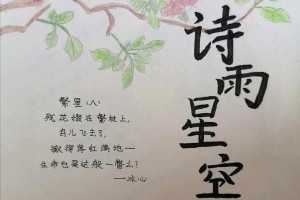 诗雨星空
繁星(八)
残花缀在繁枝上,
鸟儿飞去了,
撒得落红满地—
生命也是这般一瞥么?
—冰心